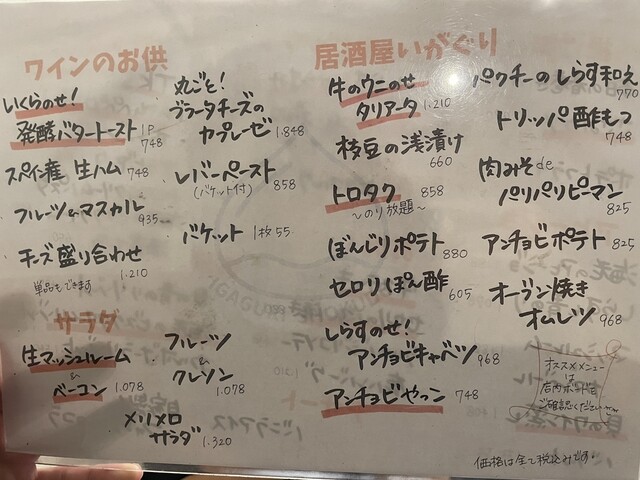 ワインのお供
いくらのせ!
発酵バタートースト 1P
748
スペイン産 生ハム 748
フルーツ&マスカル 935
チーズ盛り合わせ
1.210
単品もできます
丸ごと!
ブラータチーズの
カプレーゼ 1.848
レバーペースト
(バケット付) 858
バケット 1枚55.
サラダ
生マッシュルーム
&
ベーコン 1.078
フルーツ
&
クレソン
1.078
メリメロ
サラダ 1.320
居酒屋いがぐり
牛のウニのせ
タリアータ 1.210
枝豆の浅漬け
660
トロタク 858
~のり放題~
ぼんじりポテト 880
セロリぽん酢 605
しらすのせ!
アンチョビキャベツ 968
アンチョビやっこ 748
パクチーのしらす和え
770
トリッパ酢もつ
748
肉みそde
パリパリピーマン
825
アンチョビポテト 825
オーブン焼き
オムレツ 968
オススメメニュー
は
店内ボードを
ご確認ください
価格は全て税込みです。